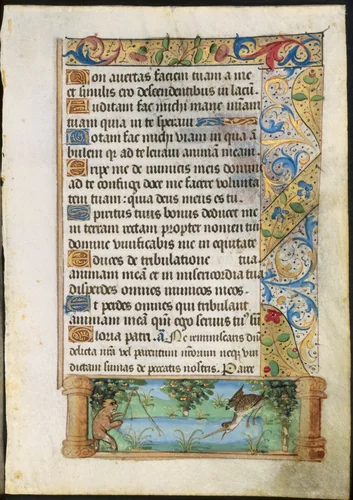 Non avertas faciem tuam a me
et similis ero descendentibus in lacū.
Auditam fac michi mane mīam
tuam quia in te speravi
Notam fac michi viam in qua ā
bulem qr ad te levavi animam meam.
Eripe me de inimicis meis domine
ad te confugi doce me facere volunta
tem tuam: quia deus meus es tu.
Spiritus tuus bonus deducet me
in terram rectam propter nomen tuū
domine vivificabis me in equitate
Educes de tribulatione tua
animam meā et in misericordia tua
disperdes omnes inimicos meos.
Et perdes omnes qui tribulant
animam meā qm̄ ego servus tuus sū.
Gloria patri. Ne reminiscaris dn̄e
delicta nr̄a vel parentum nr̄orum neqȝ vin
dictam sumas de peccatis nostris. Pater